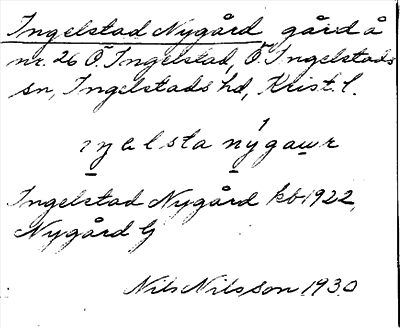 Ingelstad Nygård gård å
nr. 26 Ö. Ingelstad, Ö. Ingelstads
sn, Ingelstads hd, Krist. l.
Ingelstad Nygård kb 1922,
Nygård G
Nils Nilsson 1930